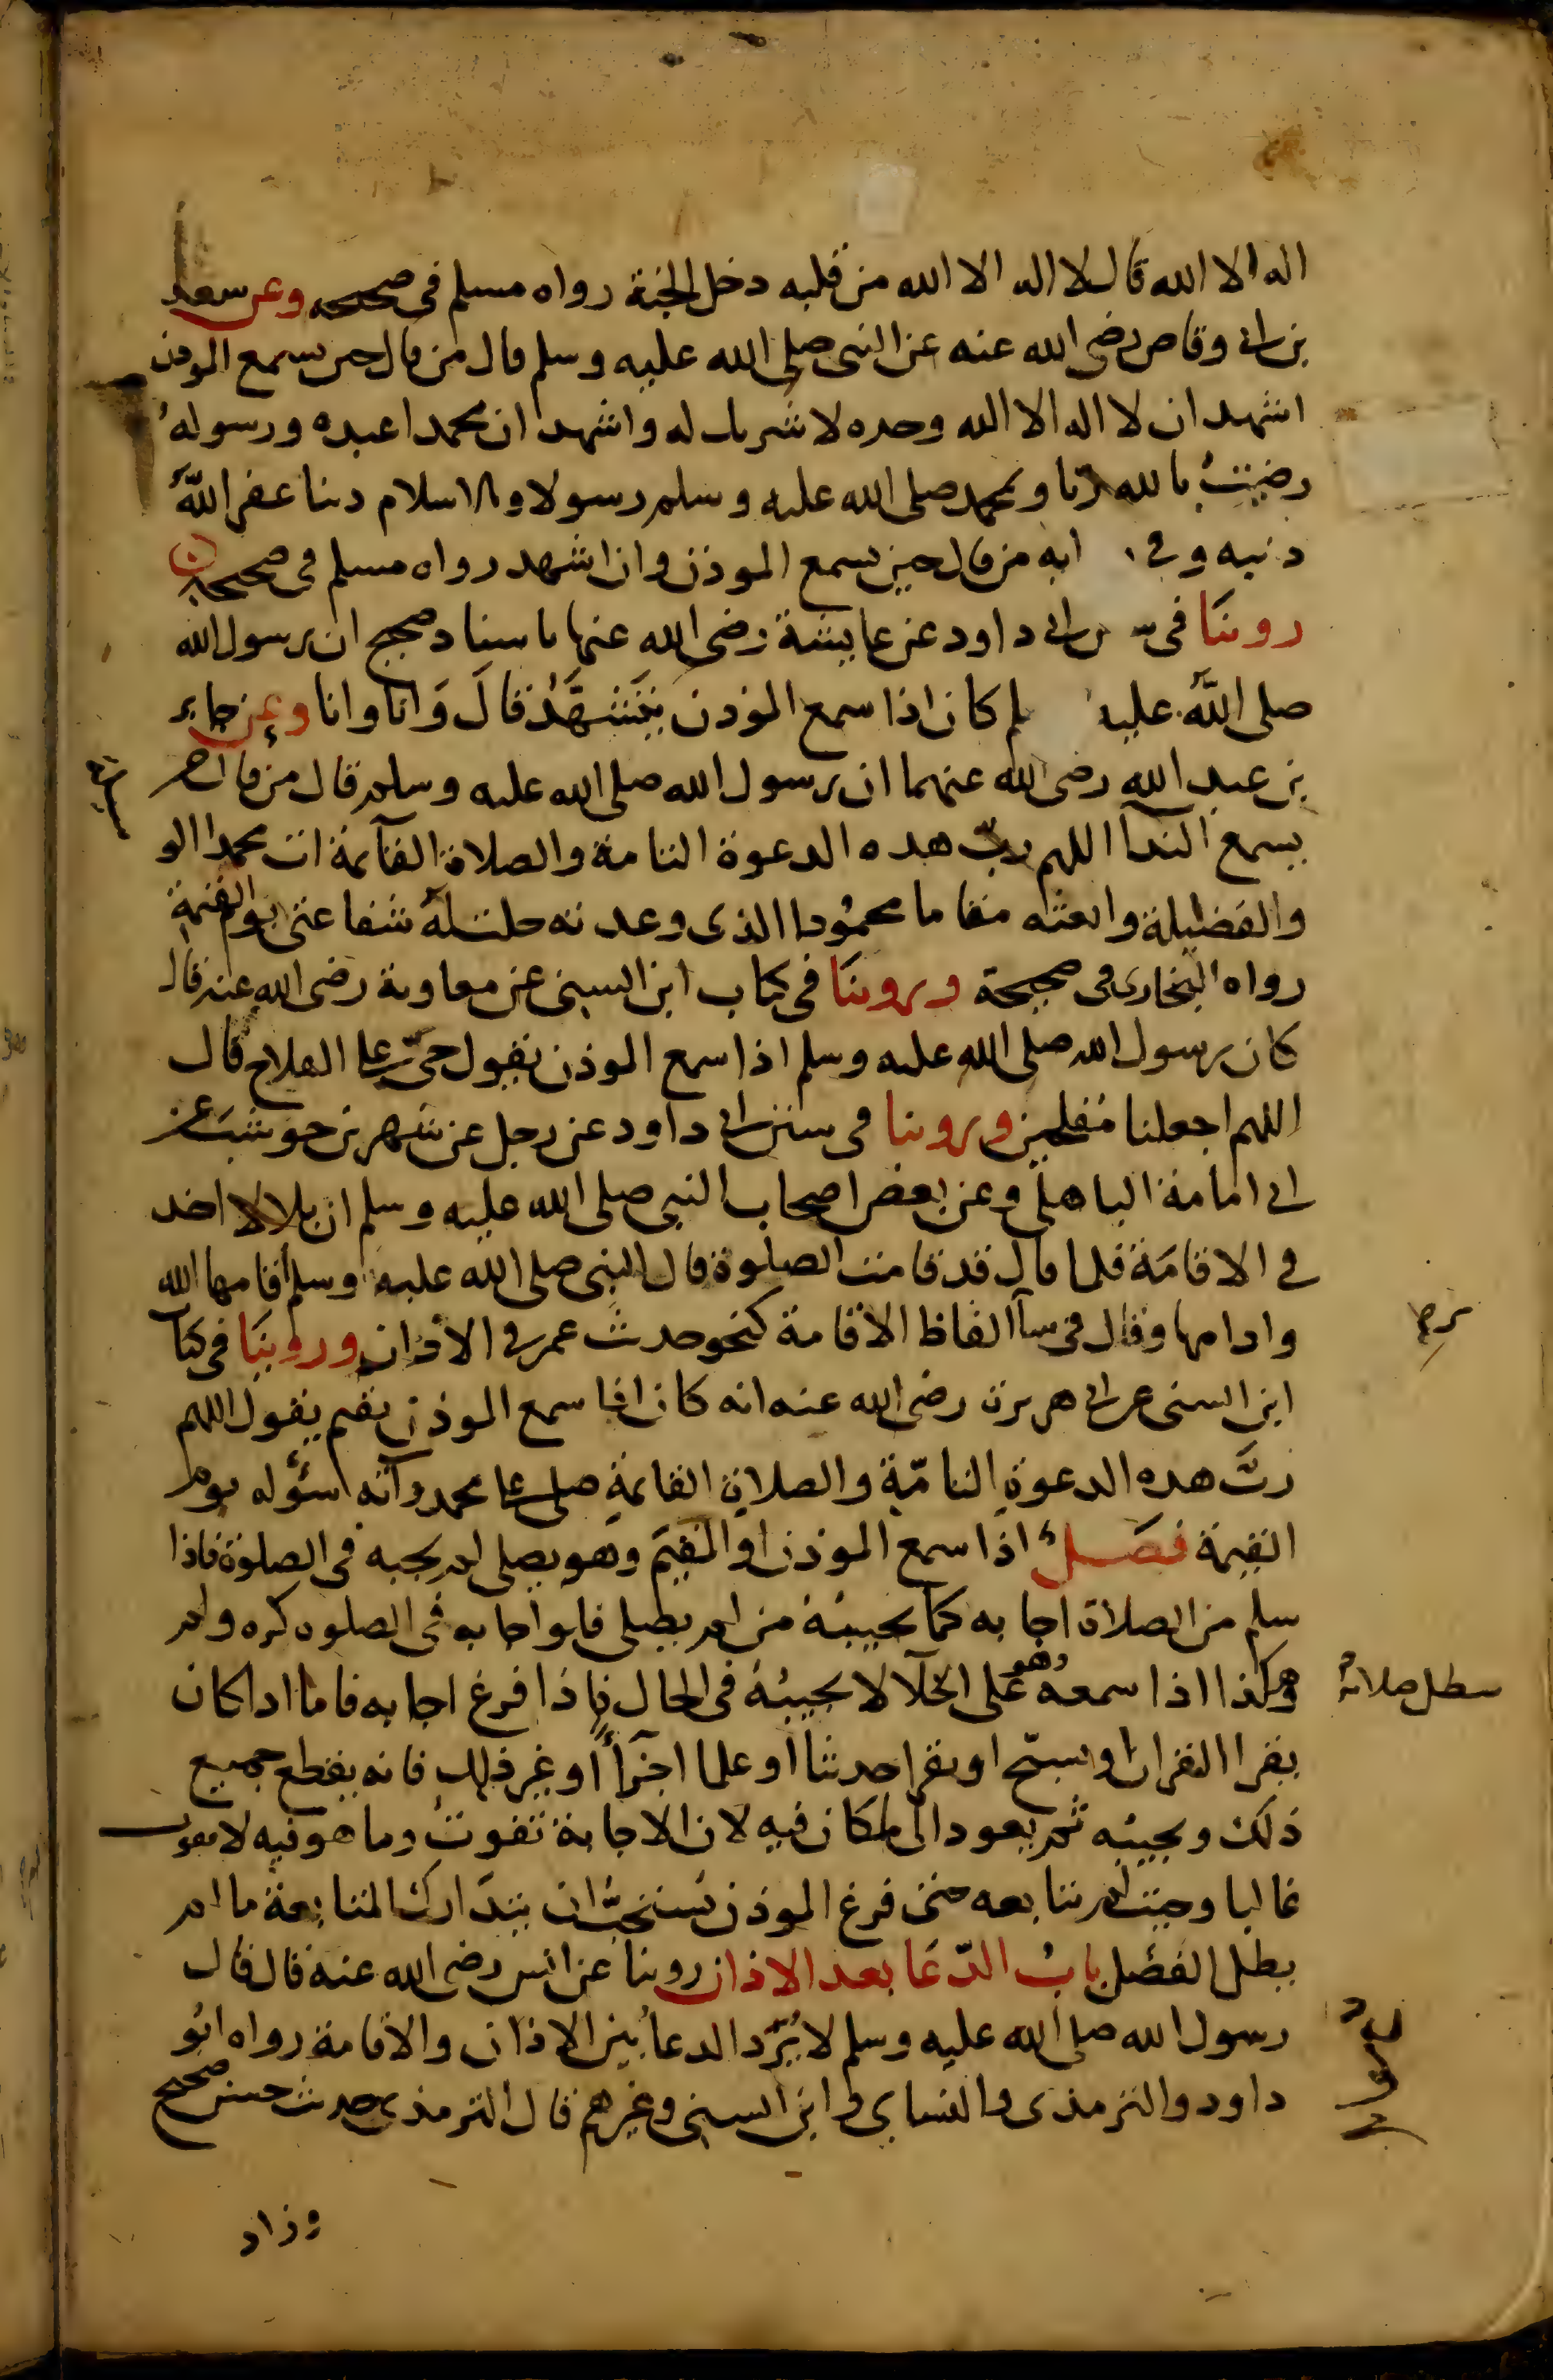 اله الا الله قال لا اله الا الله من قلبه دخل الجنة رواه مسلم فى صحيحه وعن سعد
بن ابى وقاص رضى الله عنه عن النبى صلى الله عليه وسلم قال من قال حين يسمع الموذن
اشهد ان لا اله الا الله وحده لا شريك له واشهد ان محمدا عبده ورسوله
رضيت بالله ربا وبمحمد صلى الله عليه وسلم رسولا وبالاسلام دينا غفر الله
ذنبه وفى ايه من قال حين يسمع الموذن وانا اشهد رواه مسلم فى صحيحه
روينا فى سنن ابى داود عن عايشة رضى الله عنها باسناد صحيح ان رسول الله
صلى الله عليه لم كان اذا سمع الموذن يتشهد قال وانا وانا وعن جابر
بن عبد الله رضى الله عنهما ان رسول الله صلى الله عليه وسلم قال من قال حين
يسمع الندآ اللهم رب هذه الدعوة التامة والصلاة القآيمة ات محمدا الو
سيلة
والفضيلة وابعثه مقاما محمودا الذى وعدته حلت له شفاعتى يوم القيمة
رواه البخارى فى صحيحة وروينا فى كتاب ابن السنى عن معاوية رضى الله عنه قال
كان رسول الله صلى الله عليه وسلم اذا سمع الموذن يقول حى على الفلاح قال
اللهم اجعلنا مفلحين وروينا فى سنن ابى داود عن رجل عن شهر بن حوشب عن
ابى امامة الباهلى وعن بعض اصحاب النبى صلى الله عليه وسلم ان بلالا اخذ
فى الاقامة فلما قال قد قامت الصلوة قال النبى صلى الله عليه وسلم اقامها الله
وادامها وقال فى سآ الفاظ الاقامة كنحو حديث عمر فى الاذان وروينا فى كتا
ير
ابن السنى عن ابى هريرة رضى الله عنه انه كان اذا سمع الموذن يقيم يقول اللهم
رب هذه الدعوة التامة والصلاة القايمة صل على محمد وآته سؤله يوم
القيمة فصل اذا سمع الموذن او المقيم وهو يصلى لم يجبه فى الصلوة فاذا
سلم من الصلاة اجابه كما يجيبه من لم يصلى فلو اجابه فى الصلوة كره ولم
تبطل صلاته
وهكذا اذا سمعه وهو على الخلآ لا يجيبه فى الحال فاذا فرغ اجابه فاما اذا كان
يقرا القران او يسبح او يقرا حديثا او علما اخر او غير ذلك فانه يقطع جميع
ذلك ويجيبه ثم يعود الى ما كان فيه لان الاجابة تفوت وما هو فيه لا يفوت
غالبا وحيث لم يتابعه حتى فرغ الموذن يستحب ان يتدارك المتابعة ما لم
يطل الفصل باب الدعا بعد الاذان روينا عن انس رضى الله عنه قال قال
رسول الله صلى الله عليه وسلم لا يرد الدعا بين الاذان والاقامة رواه ابو
داود والترمذى والنساى وابن السنى وغيرهم قال الترمذى حديث حسن صحيح
وزاد